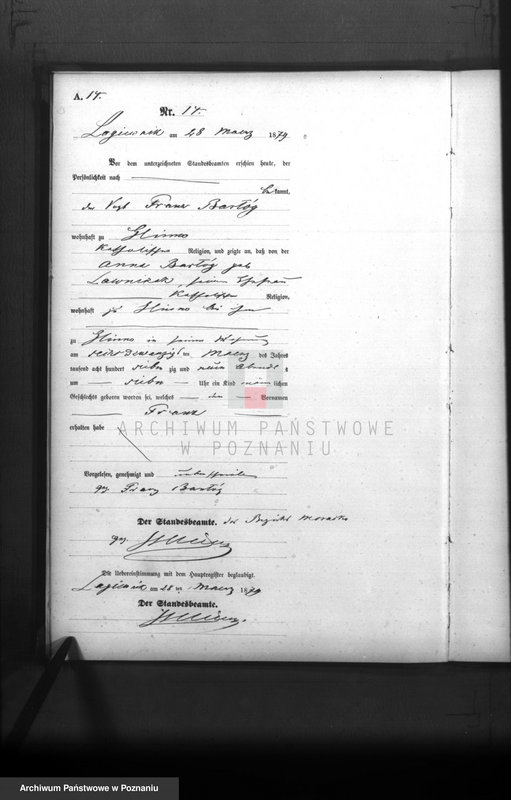 A. 14.
Nr. 14.
Lagiewnik am 28 Maerz 1879.
Vor dem unterzeichneten Standesbeamten erschien heute, der
Persönlichkeit nach
bekannt,
der Vogt Franz Bartóg
wohnhaft zu Glinno
Katholischer Religion, und zeigte an, daß von der
Anna Bartóg geb
seiner Ehefrau
Katholischer Religion,
wohnhaft zu Glinno bei ihm
zu Glinno in seiner Wohnung
am Maerz des Jahres
tausend acht hundert sieben zig und neun Abends
um sieben Uhr ein Kind männlichen
Geschlechts geboren worden sei, welches den Vornamen
Franz
erhalten habe
ARCHIWUM PAŃSTWOWE
W POZNANIU
Vorgelesen, genehmigt und unterschrieben
gez Franz Bartóg
Der Standesbeamte. des Bezirks Morasko
gez.
Die Uebereinstimmung mit dem Hauptregister beglaubigt.
Lagiewnik am 28 ten Maerz 1879
Der Standesbeamte.
Archiwum Państwowe w Poznaniu